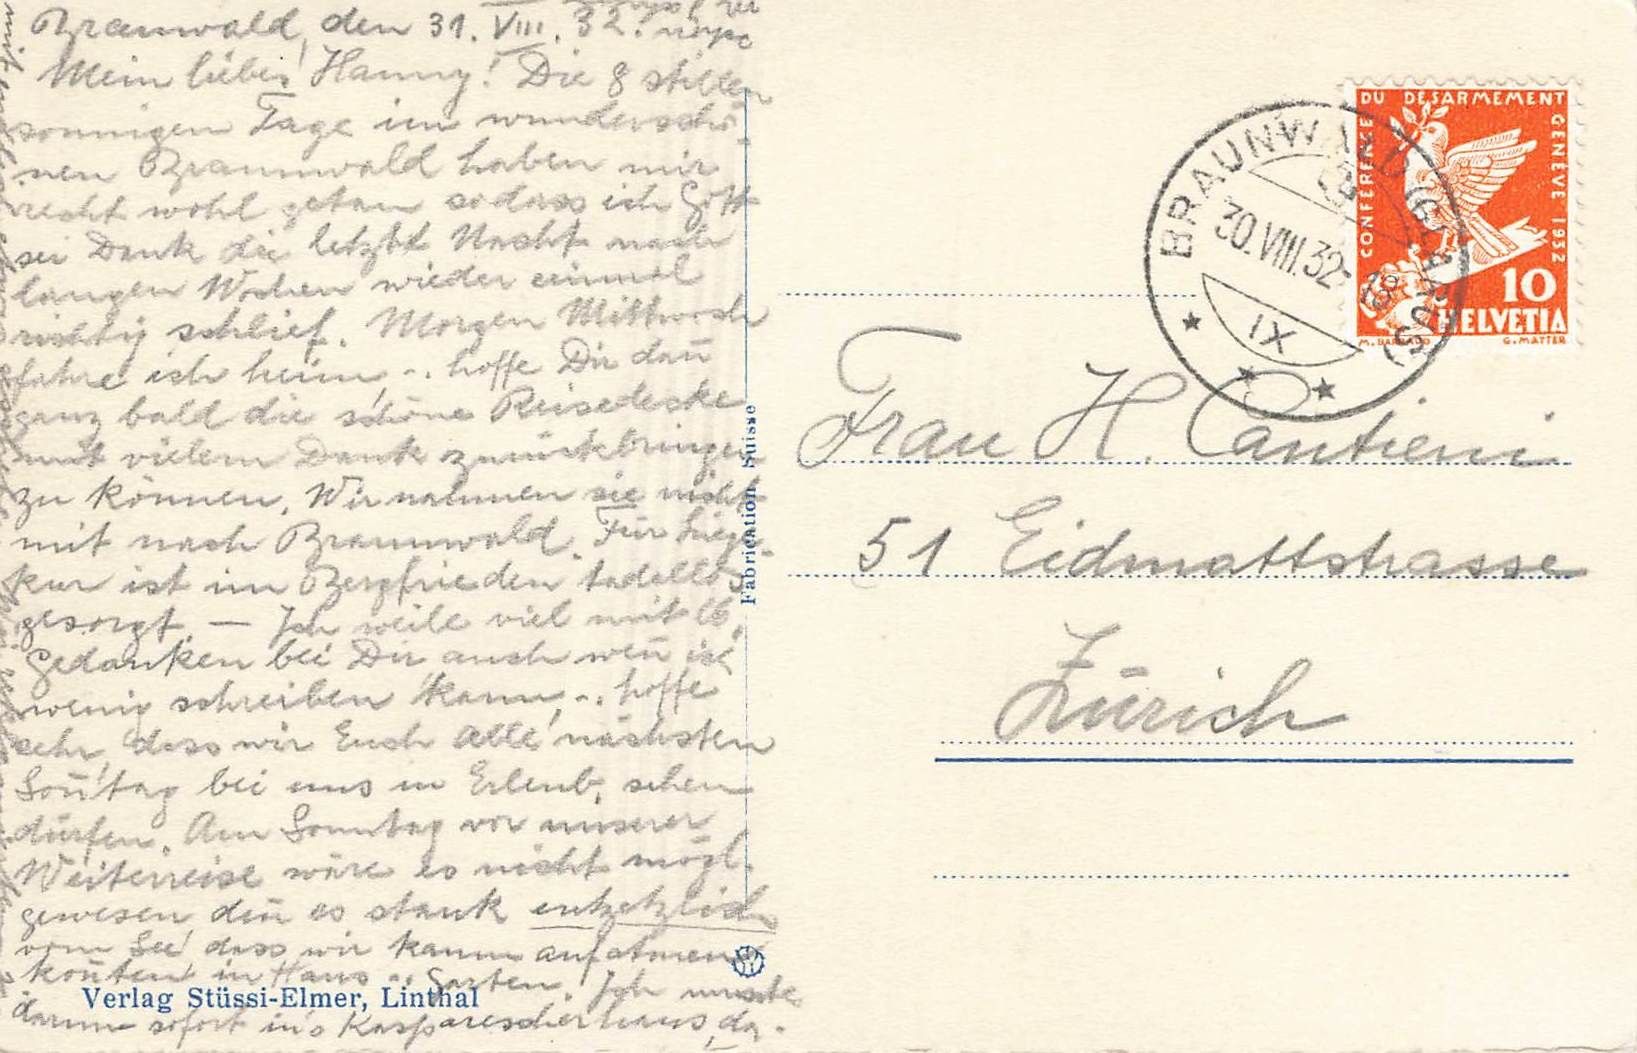 Braunwald, den 31. VIII. 32.
Mein liebes Hanny! Die 8 stillen
sonnigen Tage im wunderschö-
nen Braunwald haben mir
recht wohl getan sodass ich Gott
sei Dank die letzte Nacht nach
langen Wochen wieder einmal
richtig schlief. Morgen Mittwoch
fahre ich heim, hoffe Dir dan̄
ganz bald die schöne Reisedecke
mit vielem Dank zurückbringen
zu können. Wir nahmen sie nicht
mit nach Braunwald. Für Liege-
kur ist im Bergfrieden tadellos
gesorgt. — Ich weile viel mit
Gedanken bei Dir auch wen̄ ich
wenig schreiben kann, hoffe
sehr, dass wir Euch Alle nächsten
Son̄tag bei uns in Erlenb. sehen
dürfen. Am Sonntag vor unserer
Weiterreise wäre es nicht mögl.
gewesen, den̄ es stank entsetzlich
vom See, dass wir kaum aufatmen
kon̄ten in Haus u. Garten. Ich musste
darum sofort in's da-
Fabrication Suisse
Verlag Stüssi-Elmer, Linthal
BRAUNWALD (GLARUS)
30.VIII.32-18
IX
CONFERENCE DU DESARMEMENT GENÈVE 1932
10
HELVETIA
M. BARRAUD G. MATTER
Frau H. Cantieni
51 Eidmattstrasse
Zürich